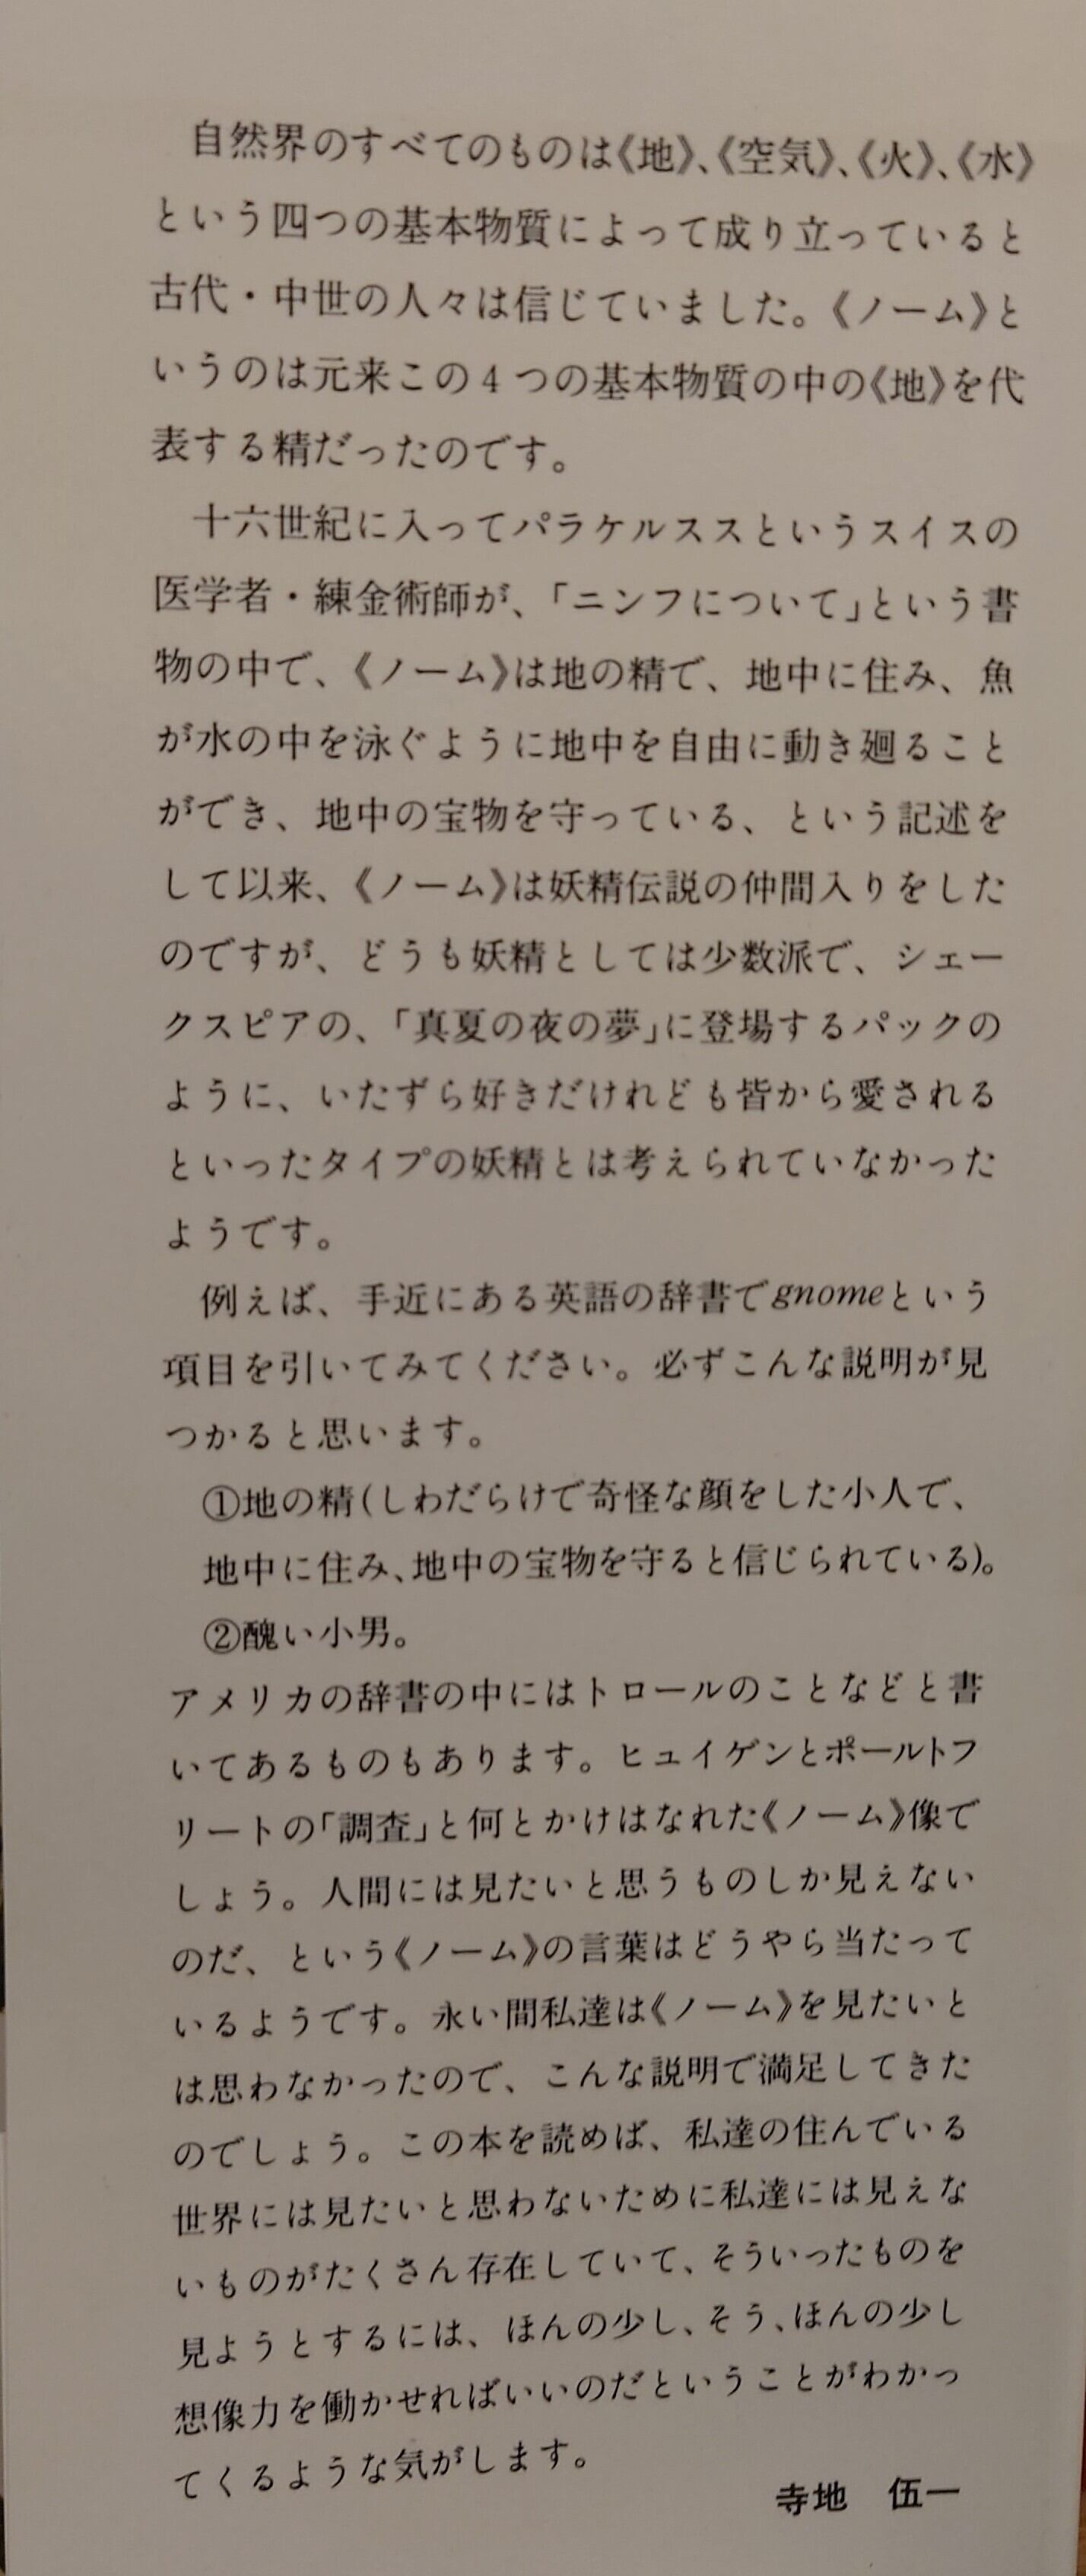 自然界のすべてのものは《地》、《空気》、《火》、《水》
という四つの基本物質によって成り立っていると
古代・中世の人々は信じていました。《ノーム》と
いうのは元来この4つの基本物質の中の《地》を代
表する精だったのです。
十六世紀に入ってパラケルススというスイスの
医学者・練金術師が、「ニンフについて」という書
物の中で、《ノーム》は地の精で、地中に住み、魚
が水の中を泳ぐように地中を自由に動き廻ること
ができ、地中の宝物を守っている、という記述を
して以来、《ノーム》は妖精伝説の仲間入りをした
のですが、どうも妖精としては少数派で、シェー
クスピアの、「真夏の夜の夢」に登場するパックの
ように、いたずら好きだけれども皆から愛される
といったタイプの妖精とは考えられていなかった
ようです。
例えば、手近にある英語の辞書でgnomeという
項目を引いてみてください。必ずこんな説明が見
つかると思います。
①地の精(しわだらけで奇怪な顔をした小人で、
地中に住み、地中の宝物を守ると信じられている)。
②醜い小男。
アメリカの辞書の中にはトロールのことなどと書
いてあるものもあります。ヒュイゲンとポールトフ
リートの「調査」と何とかけはなれた《ノーム》像で
しょう。人間には見たいと思うものしか見えない
のだ、という《ノーム》の言葉はどうやら当たって
いるようです。永い間私達は《ノーム》を見たいと
は思わなかったので、こんな説明で満足してきた
のでしょう。この本を読めば、私達の住んでいる
世界には見たいと思わないために私達には見えな
いものがたくさん存在していて、そういったものを
見ようとするには、ほんの少し、そう、ほんの少し
想像力を働かせればいいのだということがわかっ
てくるような気がします。
寺地 伍一